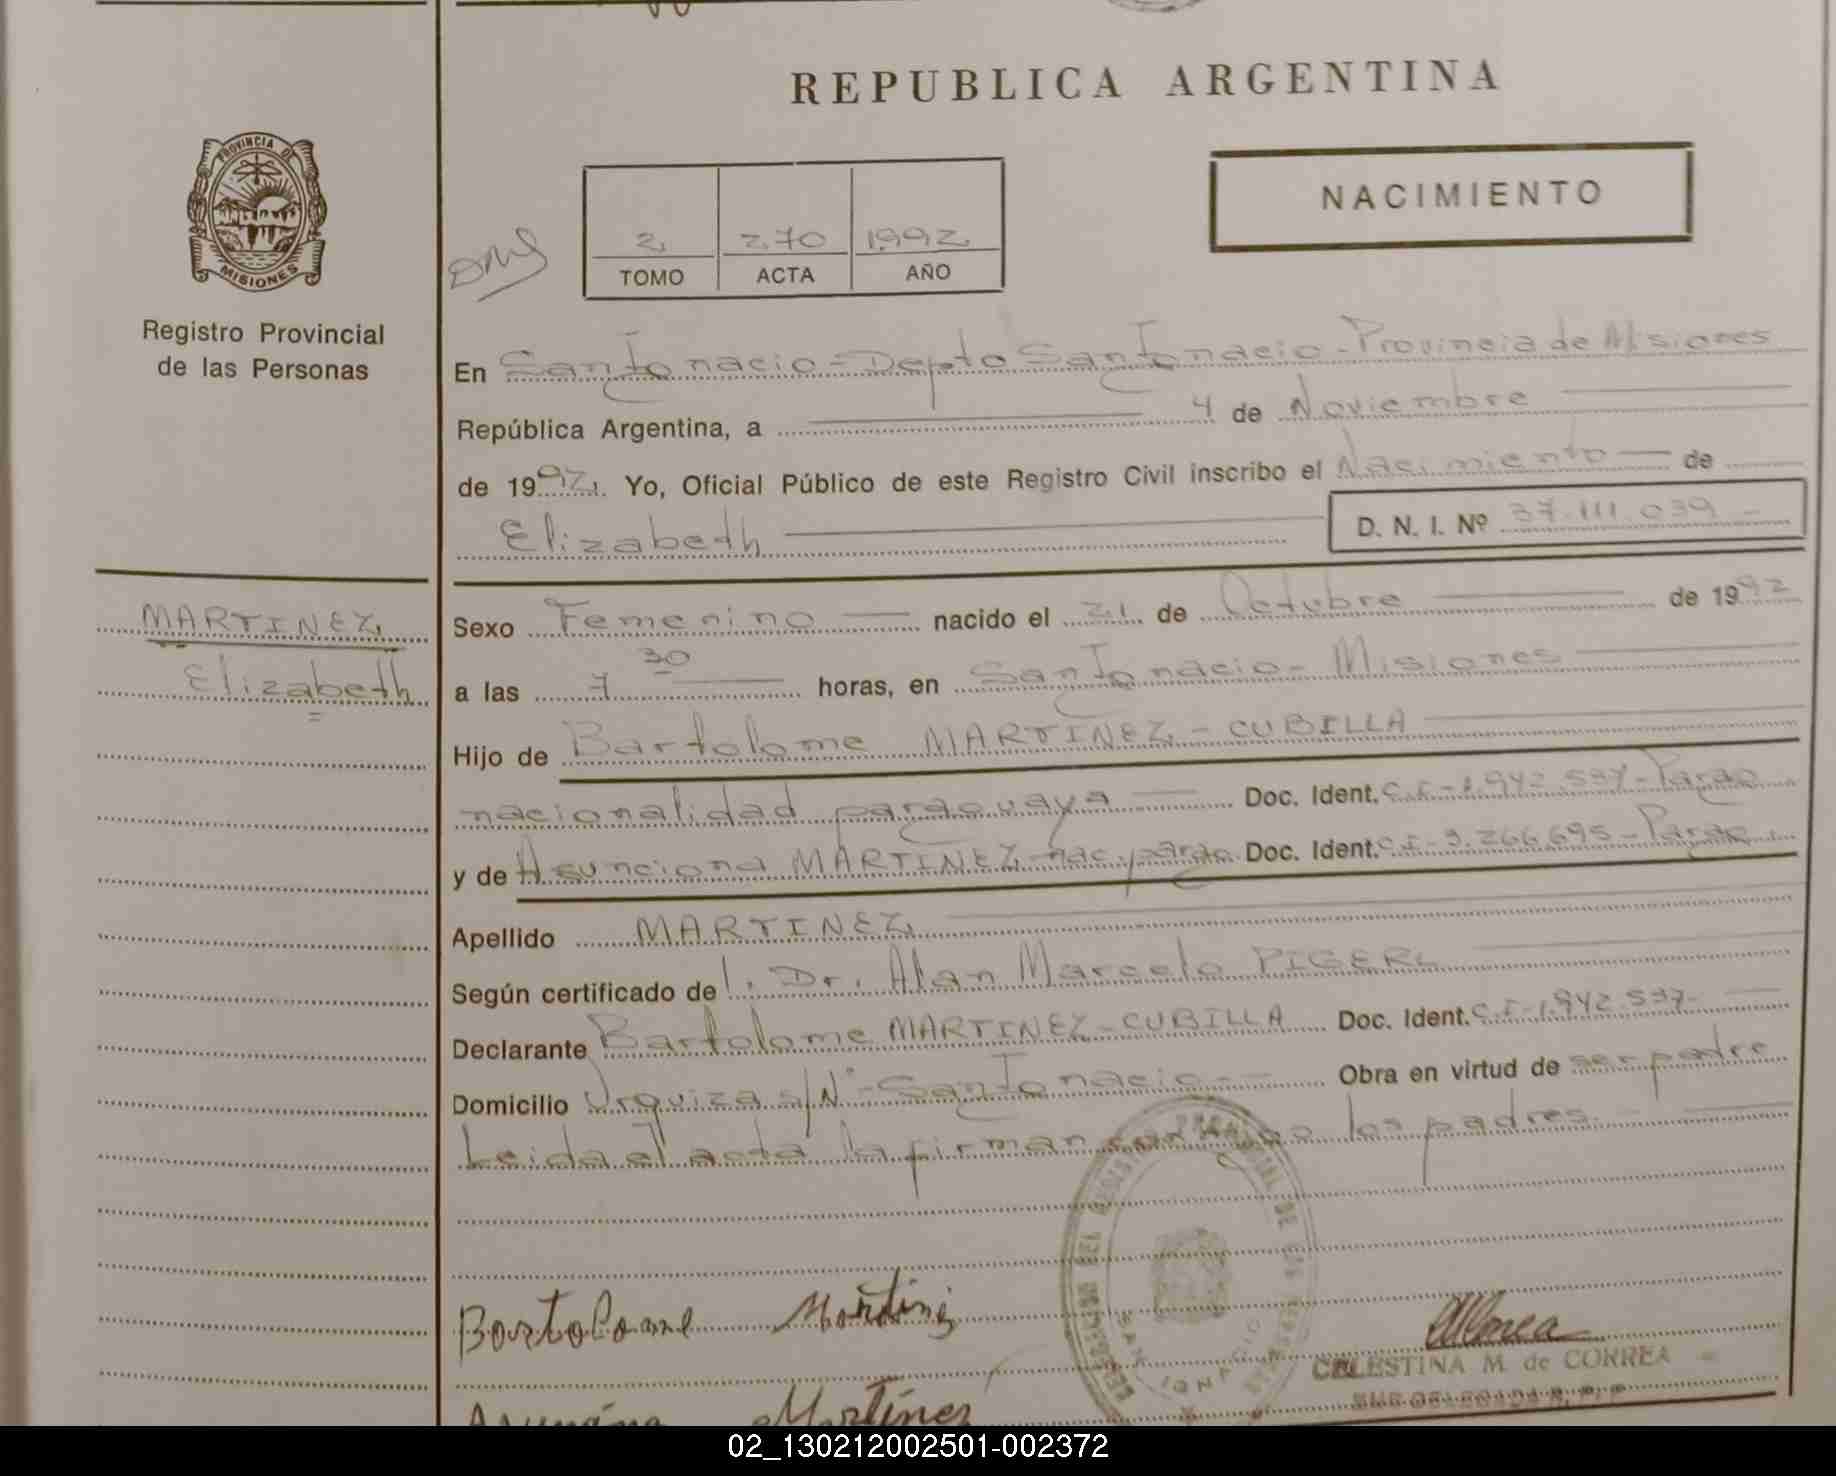 REPUBLICA ARGENTINA
PROVINCIA DE
MISIONES
Registro Provincial
de las Personas
NACIMIENTO
2 270 1992
TOMO ACTA AÑO
En San Ignacio - Depto San Ignacio - Provincia de Misiones
República Argentina, a 4 de Noviembre
de 1992. Yo, Oficial Público de este Registro Civil inscribo el Nacimiento de
Elizabeth D. N. I. Nº 37.111.039
MARTINEZ
Elizabeth
Sexo Femenino nacido el 21 de Octubre de 1992
a las 7 30 horas, en San Ignacio - Misiones
Hijo de Bartolome MARTINEZ - CUBILLA
nacionalidad paraguaya Doc. Ident. C.I - 1.942.537 - Parag
y de Asunciona MARTINEZ - nac. parag. Doc. Ident. C.I - 3.266.695 - Parag
Apellido MARTINEZ
Según certificado de l. Dr. Alan Marcelo PIGERL
Declarante Bartolome MARTINEZ - CUBILLA Doc. Ident. C.I - 1.942.537
Domicilio Urquiza s/Nº - San Ignacio Obra en virtud de ser padre
Leida el acta la firman conmigo los padres
Bartolome Martinez
CELESTINA M. de CORREA
Martínez
SAN IGNACIO
02_130212002501-002372